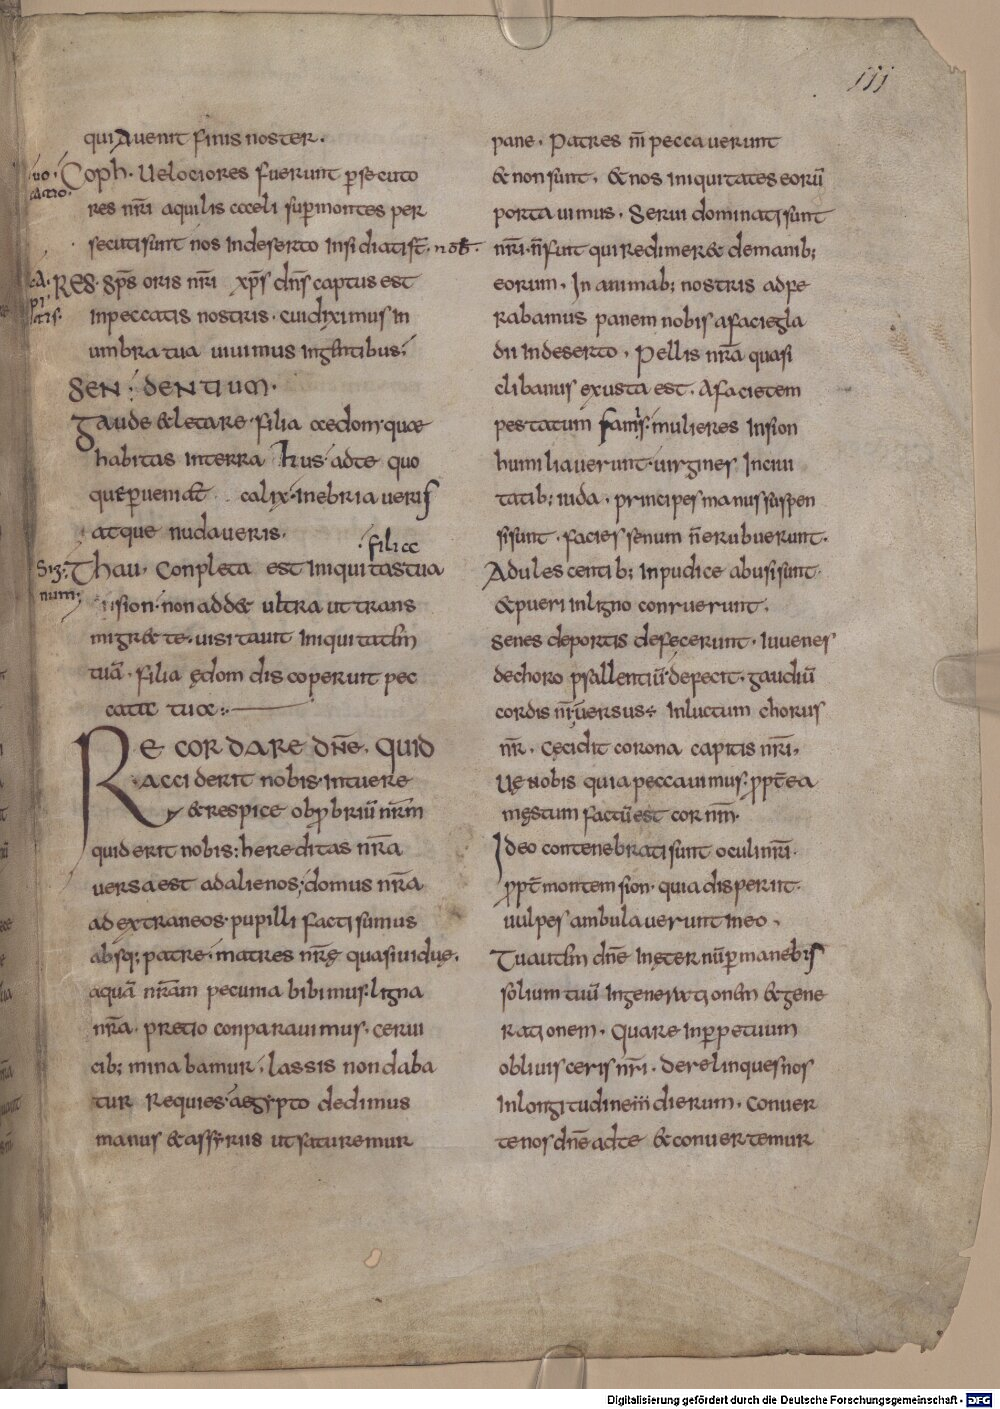 111
qui Avenit finis noster.
vo
catio.
Coph. Velociores fuerunt ꝑsecuto
res nr̄i aquilis cceli suꝑ montes per
secuti sunt nos indeserto insidiatisr̄. nob̄.
cA.
pi
tis.
RES. sp̄s oris nr̄i xp̄s dn̄s captus est
inpeccatis nostris. cui diximus in
umbra tua uiuimus ingentibus;
SEN. DENTIUM.
Gaude & letare. filia ccedom. quae
habitas interra hus. adte quo
queꝑueniat̄ calix. inebriaueris
atque nudaueris.
filicc
Sig
num;
Thau. Conpleta est iniquitas tua
sion. non add& ultra ut trans
migr& te. uisitauit iniquitatem
tuā. filia ędom discoperuit pec
cata tua:
RE CORDARE DN̄E. QUID
Acciderit nobis. intuere
& respice obꝓbriū nr̄m
quid erit nobis: hereditas nr̄a
uersa est adalienos; domus nr̄a
ad extraneos. pupilli facti sumus
absq; patre. matres nr̄ę quasi uiduę.
aquā nr̄am pecunia bibimus. ligna
nr̄a. pretio conparauimus. cerui
cib; minabamur. lassis non daba
tur requies. aegypto dedimus
manus & assyriis ut saturemur
pane. Patres nr̄i peccauerunt
& non sunt. & nos iniquitates eorū
portauimus. Serui dominati sunt
nr̄i. n̄ fuit qui redimer& demanib;
eorum. In animab; nostris adfe
rabamus panem nobis afaciegla
dii indeserto. Pellis nr̄a quasi
clibanus exusta est. Afacietem
pestatum famis. mulieres insion
humiliauerunt. uirgines inciui
tatib; iuda. principes manus suspen
sisunt. facies senum n̄ erubuerunt.
Adulescentib; inpudice abusi sunt
& pueri inligno conruerunt.
senes deportis defecerunt. iuuenes
dechoro psallentiū. defecit. gaudiū
cordis nr̄i. uersus: inluctum chorus
nr̄. Cęcidit corona capitis nr̄i.
Uę nobis quia peccauimus. ꝓpt̄ea
męstum factū est cor nr̄m.
Ideo contenebrati sunt oculi nr̄i.
ꝓpt̄ montem sion. quia disperiit.
uulpes ambulauerunt ineo.
Tu autem dn̄e inęternūꝑmanebis
solium tuū ingenerationem & gene
rationem. Quare inꝑpetuum
obliuisceris nr̄i. derelinques nos
inlongitudinem dierum. Conuer
te nos dn̄e adte & conuertemur
Digitalisierung gefördert durch die Deutsche Forschungsgemeinschaft - DFG